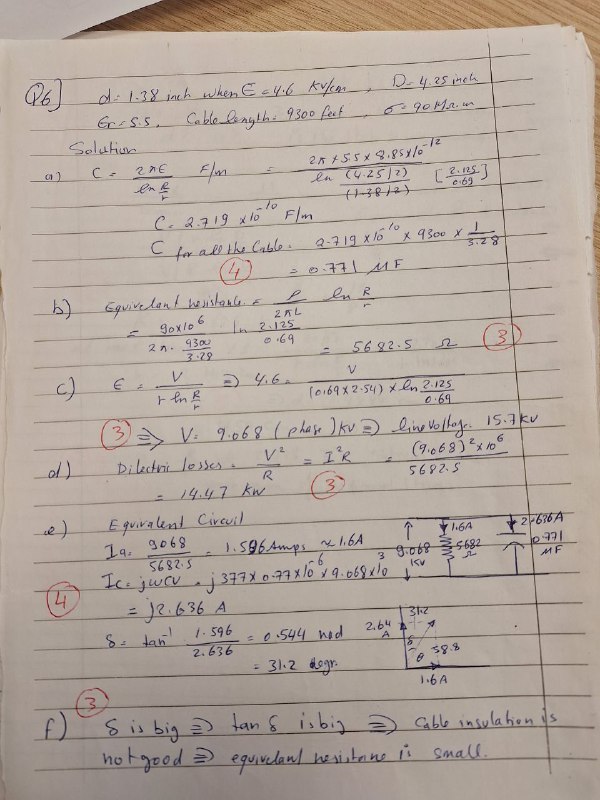 Q6] d = 1.38 inch when E = 4.6 KV/cm , D = 4.25 inch
Er = 5.5, Cable length = 9300 feet, σ = 90 MΩ.m
Solution
a) C = 2πE / ln R/r F/m = 2π × 5.5 × 8.85 × 10^-12 / ln (4.25/2) / (1.38/2) [2.125 / 0.69]
C = 2.719 × 10^-10 F/m
C for all the Cable = 2.719 × 10^-10 × 9300 × 1/3.28
(4) = 0.771 MF
b) Equivelant resistance = ρ / 2πL ln R/r
= 90×10^6 / 2π · 9300/3.28 ln 2.125/0.69 = 5682.5 Ω (3)
c) E = V / r ln R/r ⇒ 4.6 = V / (0.69 × 2.54) × ln 2.125/0.69
(3) ⇒ V = 9.068 (phase) KV ⇒ line Voltage 15.7 KV
d) Dilectric losses = V²/R = I²R = (9.068)² × 10^6 / 5682.5
= 14.47 KW (3)
e) Equivalent Circuit
Ia = 9068/5682.5 = 1.596 Amps ≈ 1.6A
Ic = jωcv = j 377 × 0.77 × 10^-6 × 9.068 × 10^3
(4) = j2.636 A
δ = tan^-1 1.596/2.636 = 0.544 rad
= 31.2 degr.
9.068 KV
1.6A
5682 Ω
2.636A
0.771 MF
31.2
2.64 A
δ
θ 58.8
1.6A
(3)
f) δ is big ⇒ tan δ is big ⇒ Cable insulation is
not good ⇒ equivelant resistane is small.